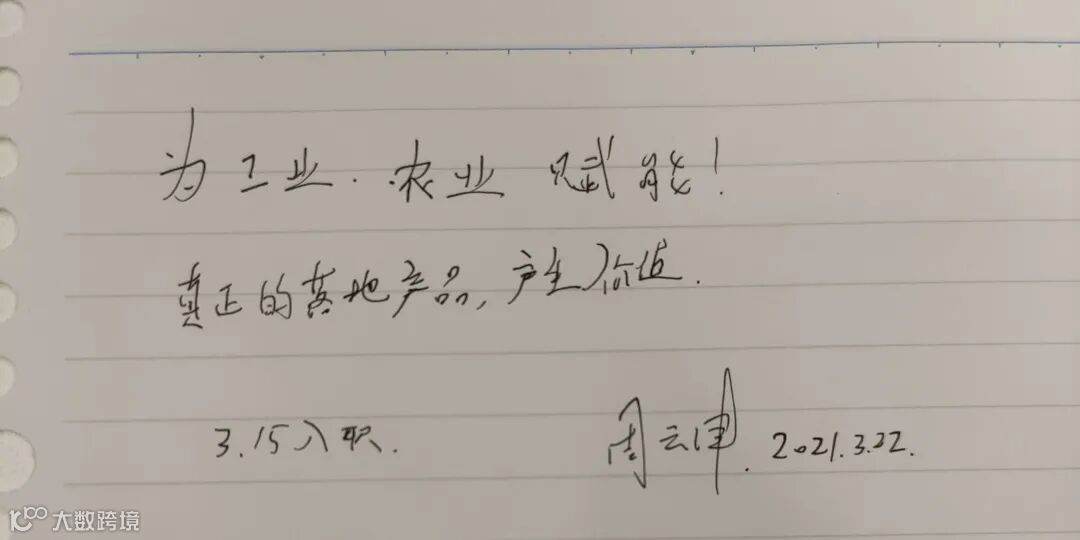 为工业、农业 赋能！
真正的落地产品，产生价值.
3.15入职.
周云 2021.3.22.
大数跨境